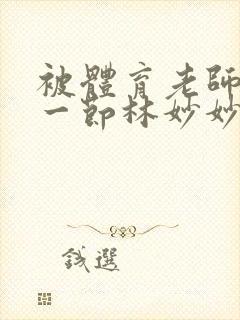 被體育老師
一節林妙妙
錢選